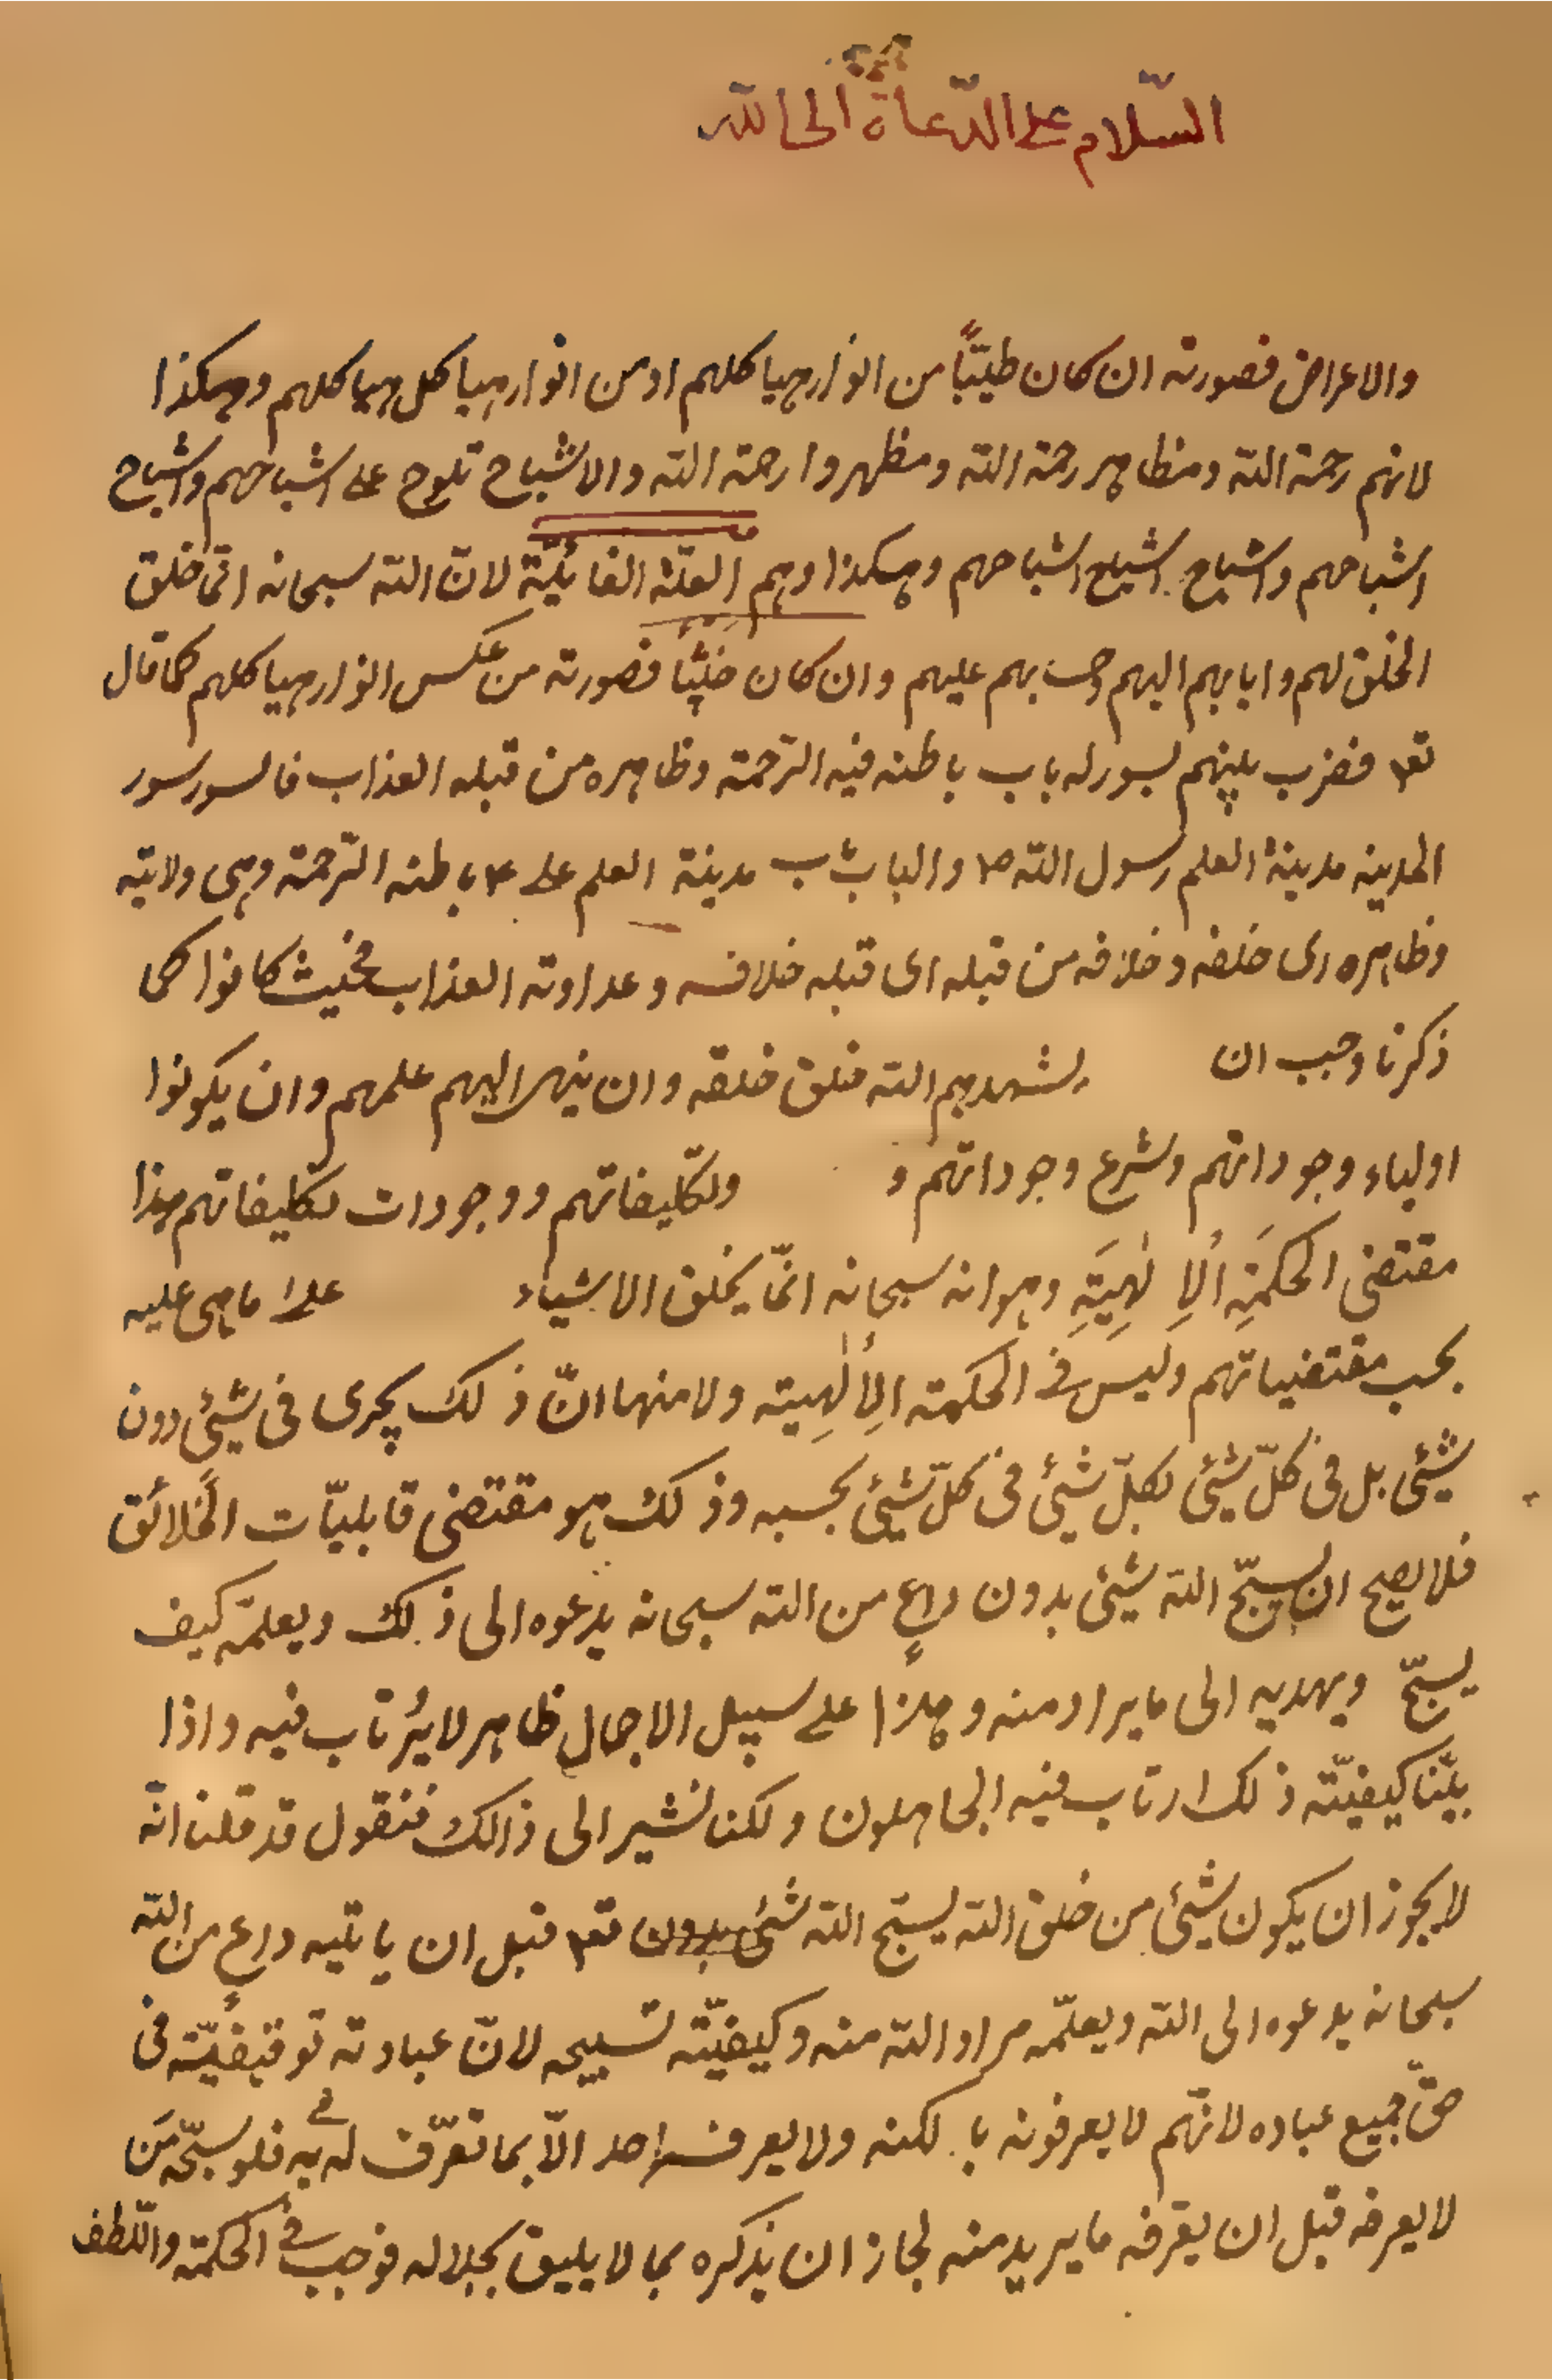 السّلام على الدّعاة الى الله
والاعراض فصورته ان كان طيّبًا من انوار هياكلهم او من انوار هياكل هياكلهم وهكذا
لانهم رحمة الله ومظاهر رحمة الله ومظهروا رحمة الله والاشباح تلوح على اشباحهم واشباح
اشباحهم واشباح اشباح اشباحهم وهكذا وهم العلّة الغائيّة لانّ الله سبحانه انّما خلق
الخلق لهم وايابهم اليهم وحسابهم عليهم وان كان خبيثًا فصورته من عكس انوار هياكلهم كما قال
تعـ فضرب بينهم بسور له باب باطنه فيه الرّحمة وظاهره من قبله العذاب فالسور سور
المدينه مدينة العلم رسول الله ص والباب باب مدينة العلم على ع باطنه الرّحمة وهى ولايته
وظاهره اى خلفه وخلافه من قبله اى قبله خلافه وعداوته العذاب فحيث كانوا كما
ذكرنا وجب ان يشهدهم الله خلق خلقه وان ينهى اليهم علمهم وان يكونوا
اولياء وجوداتهم وشرع وجوداتهم و ولتكليفاتهم ووجودات تكليفاتهم هذا
مقتضى الحكمَةِ الْاِلٰهِيَةِ وهو انه سبحانه انّما يخلق الاشياء على ما هى عليه
بحسب مقتضياتهم وليس فى الحكمة الالٰهِيته ولا منها انّ ذلك يجرى فى شيئ دون
شيئى بل فى كلّ شيئى لكلّ شيئ فى كلّ شيئ بحسبه وذلك هو مقتضى قابليّات الخلائق
فلا يصح ان يسبّح الله شيئى بدون داعٍ من الله سبحانه يدعوه الى ذلك ويعلمّه كيف
يسبّح ويهديه الى ما يراد منه وهذا على سبيل الاجمال ظاهر لا يُرتاب فيه واذا
بيّنا كيفيّته ذلك ارتاب فيه الجاهلون ولكنا نشير الى ذالك فنقول قد قلنا انّه
لا يجوز ان يكون شيئ من خلق الله يسبّح الله شئى بدون تعـ قبل ان ياتيه داعٍ من الله
سبحانه يدعوه الى الله ويعلّمه مراد الله منه وكيفيّته تسبيحه لانّ عبادته توقيفيّته فى
حقّ جميع عباده لانّهم لا يعرفونه بالكنه ولا يعرفه احد الّا بما تعرّف له به فلو سبّحه مَن
لا يعرفه قبل ان يعرّفه ما يريد منه لجاز ان يذكره بما لا يليق بجلاله فوجب فى الحكمة واللّطف